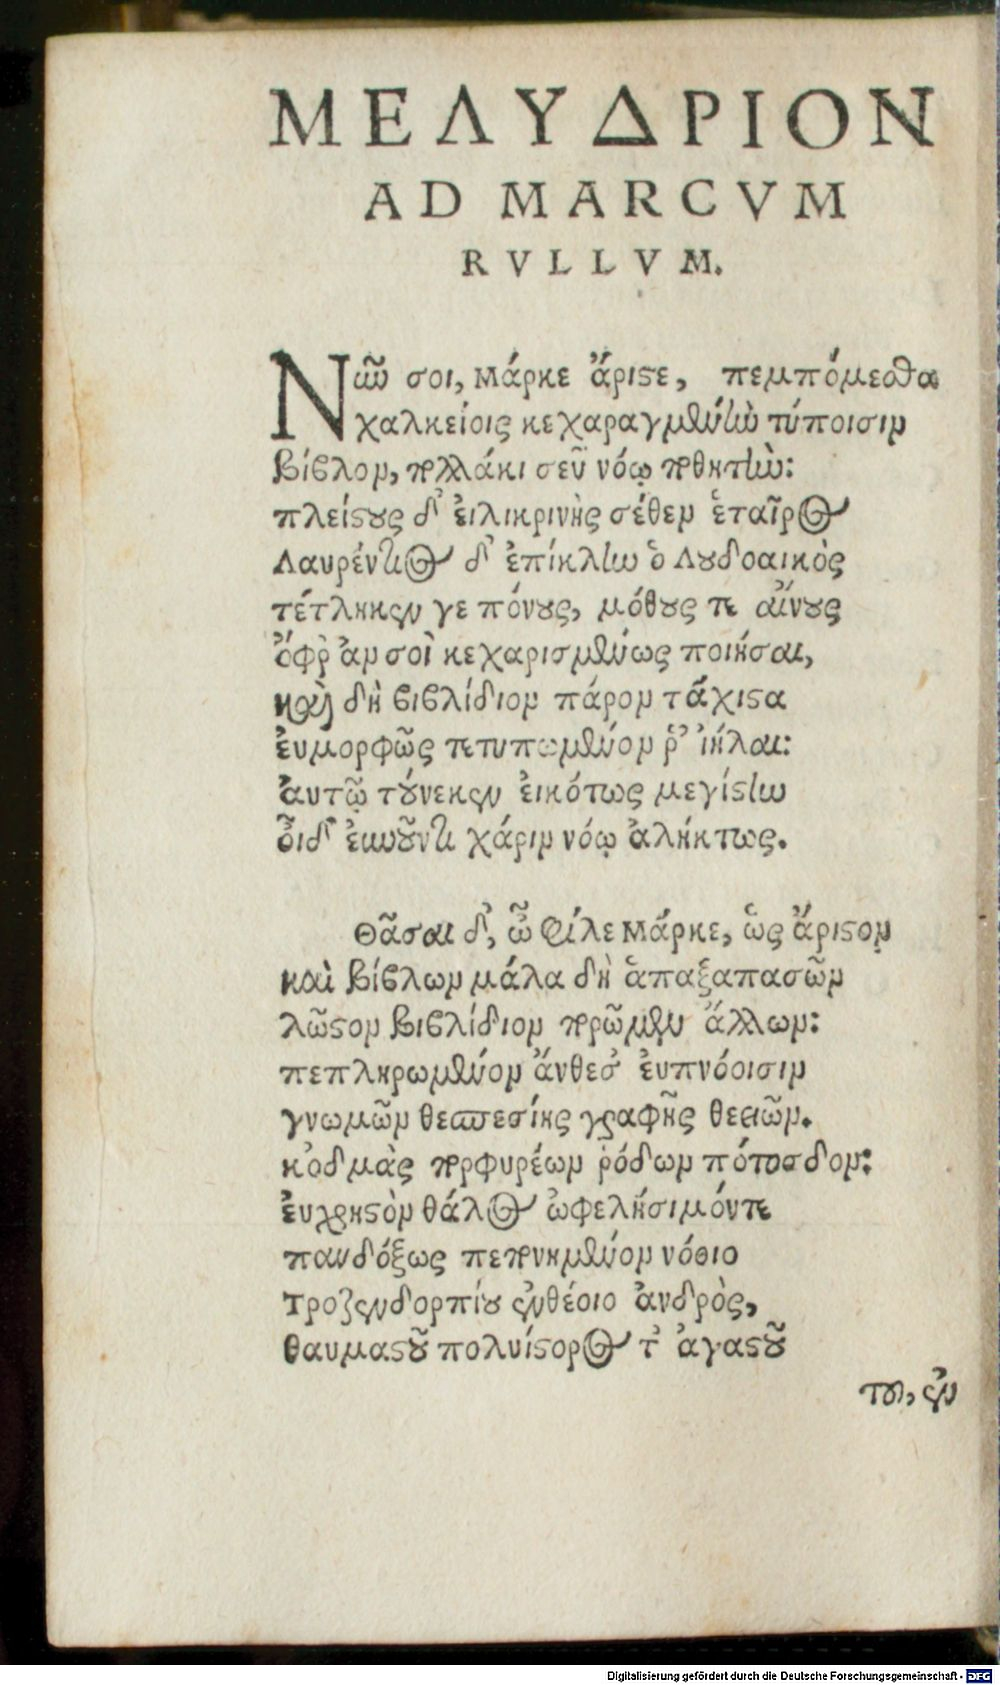 ΜΕΛΥΔΡΙΟΝ
AD MARCVM
RVLLVM.
Νῶν σοι, Μάρκε ἄριστε, πεμπόμεσθα
χαλκείοις κεχαραγμένην τύποισιν
Βίβλον, πολλάκι σεῦ νόῳ ποθητὴν:
πλείστους δ' ἐιλικρινὴς σέθεν ἑταῖρος
Λαυρέντιος δ' ἐπίκλην ὁ Λυδοαικὸς
τέτληκεν γε πόνους, μόθους τε αἴνους
ὄφρ' ἄν σοὶ κεχαρισμένως ποιήσαι,
καὶ δὴ βιβλίδιον πάρον τάχιστα
ἐυμορφῶς τετυπωμένον ῥ' ἰήλαι:
ἀυτῷ τούνεκεν ἐικότως μεγίστην
οἶδ' ἐμοῦντι χάριν νόῳ ἀλήκτως.
Θᾶσαι δ', ὦ φίλε Μάρκε, ὡς ἄριστον
καὶ βίβλων μάλα δὴ ἁπαξαπασῶν
λῶστον βιβλίδιον πορῶμεν ἄλλων:
πεπληρωμένον ἄνθεσ' ἐυπνόοισιν
γνωμῶν θεσπεσίης γραφῆς θεειῶν.
κ'οδμὰς πορφυρέων ῥόδων πότοσδον:
ἐυχρηστὸν θάλος ὠφελήσιμόν τε
πανδόξως πεπονημένον νόθιο
Τροζενδορπίου ἐνθέοιο ἀνδρὸς,
θαυμαστοῦ πολυίστορος τ' ἀγαστοῦ
του, ἐν